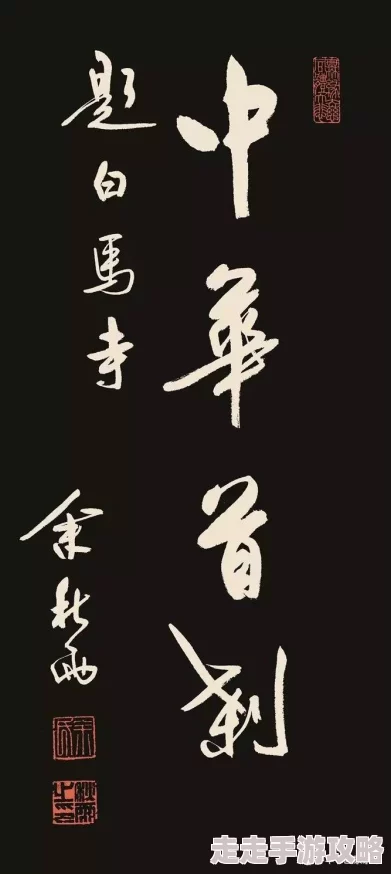 中華首刹
題白馬寺
余秋雨
走走手游攻略